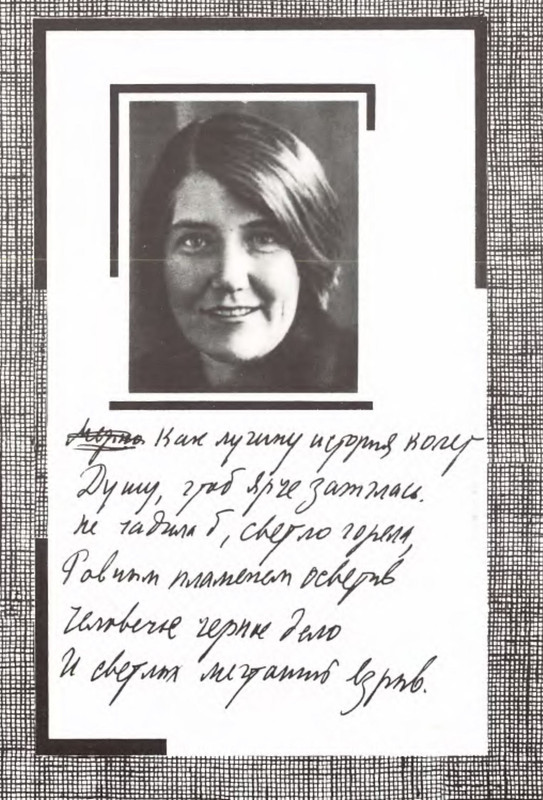 Мерно Как лучину история колет
Душу, чтоб ярче зажглась.
Не чадила б, светло горела,
Ровным пламенем осветив
Человечье черное дело
И светлых мечтаний взрыв.